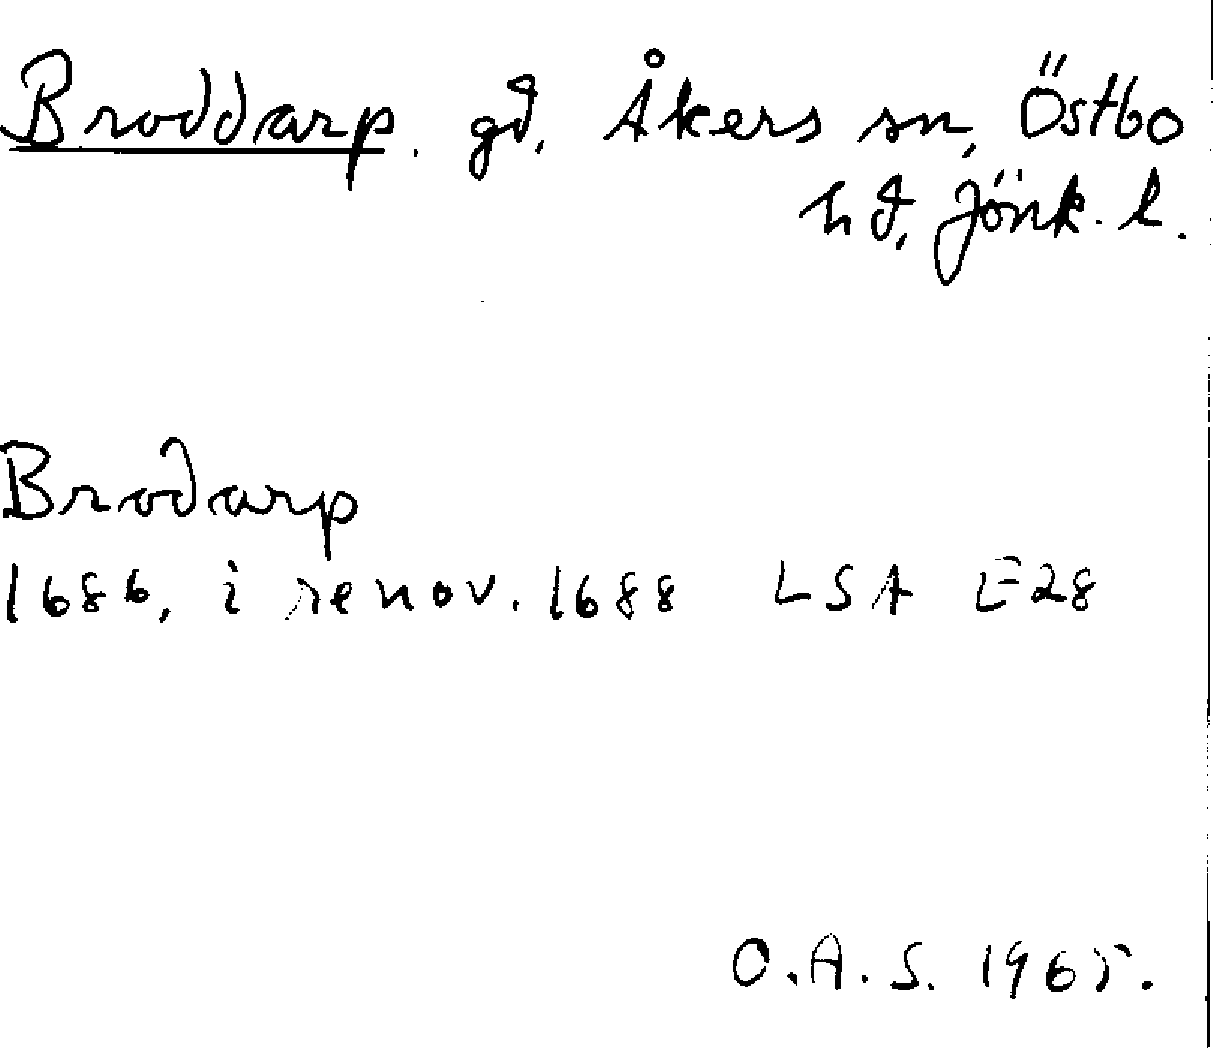 Broddarp. gd, Åkers sn, Östbo
hd, Jönk. l.
Brodarp
1686, i renov. 1688 LSA E28
O.A.S. 1965.